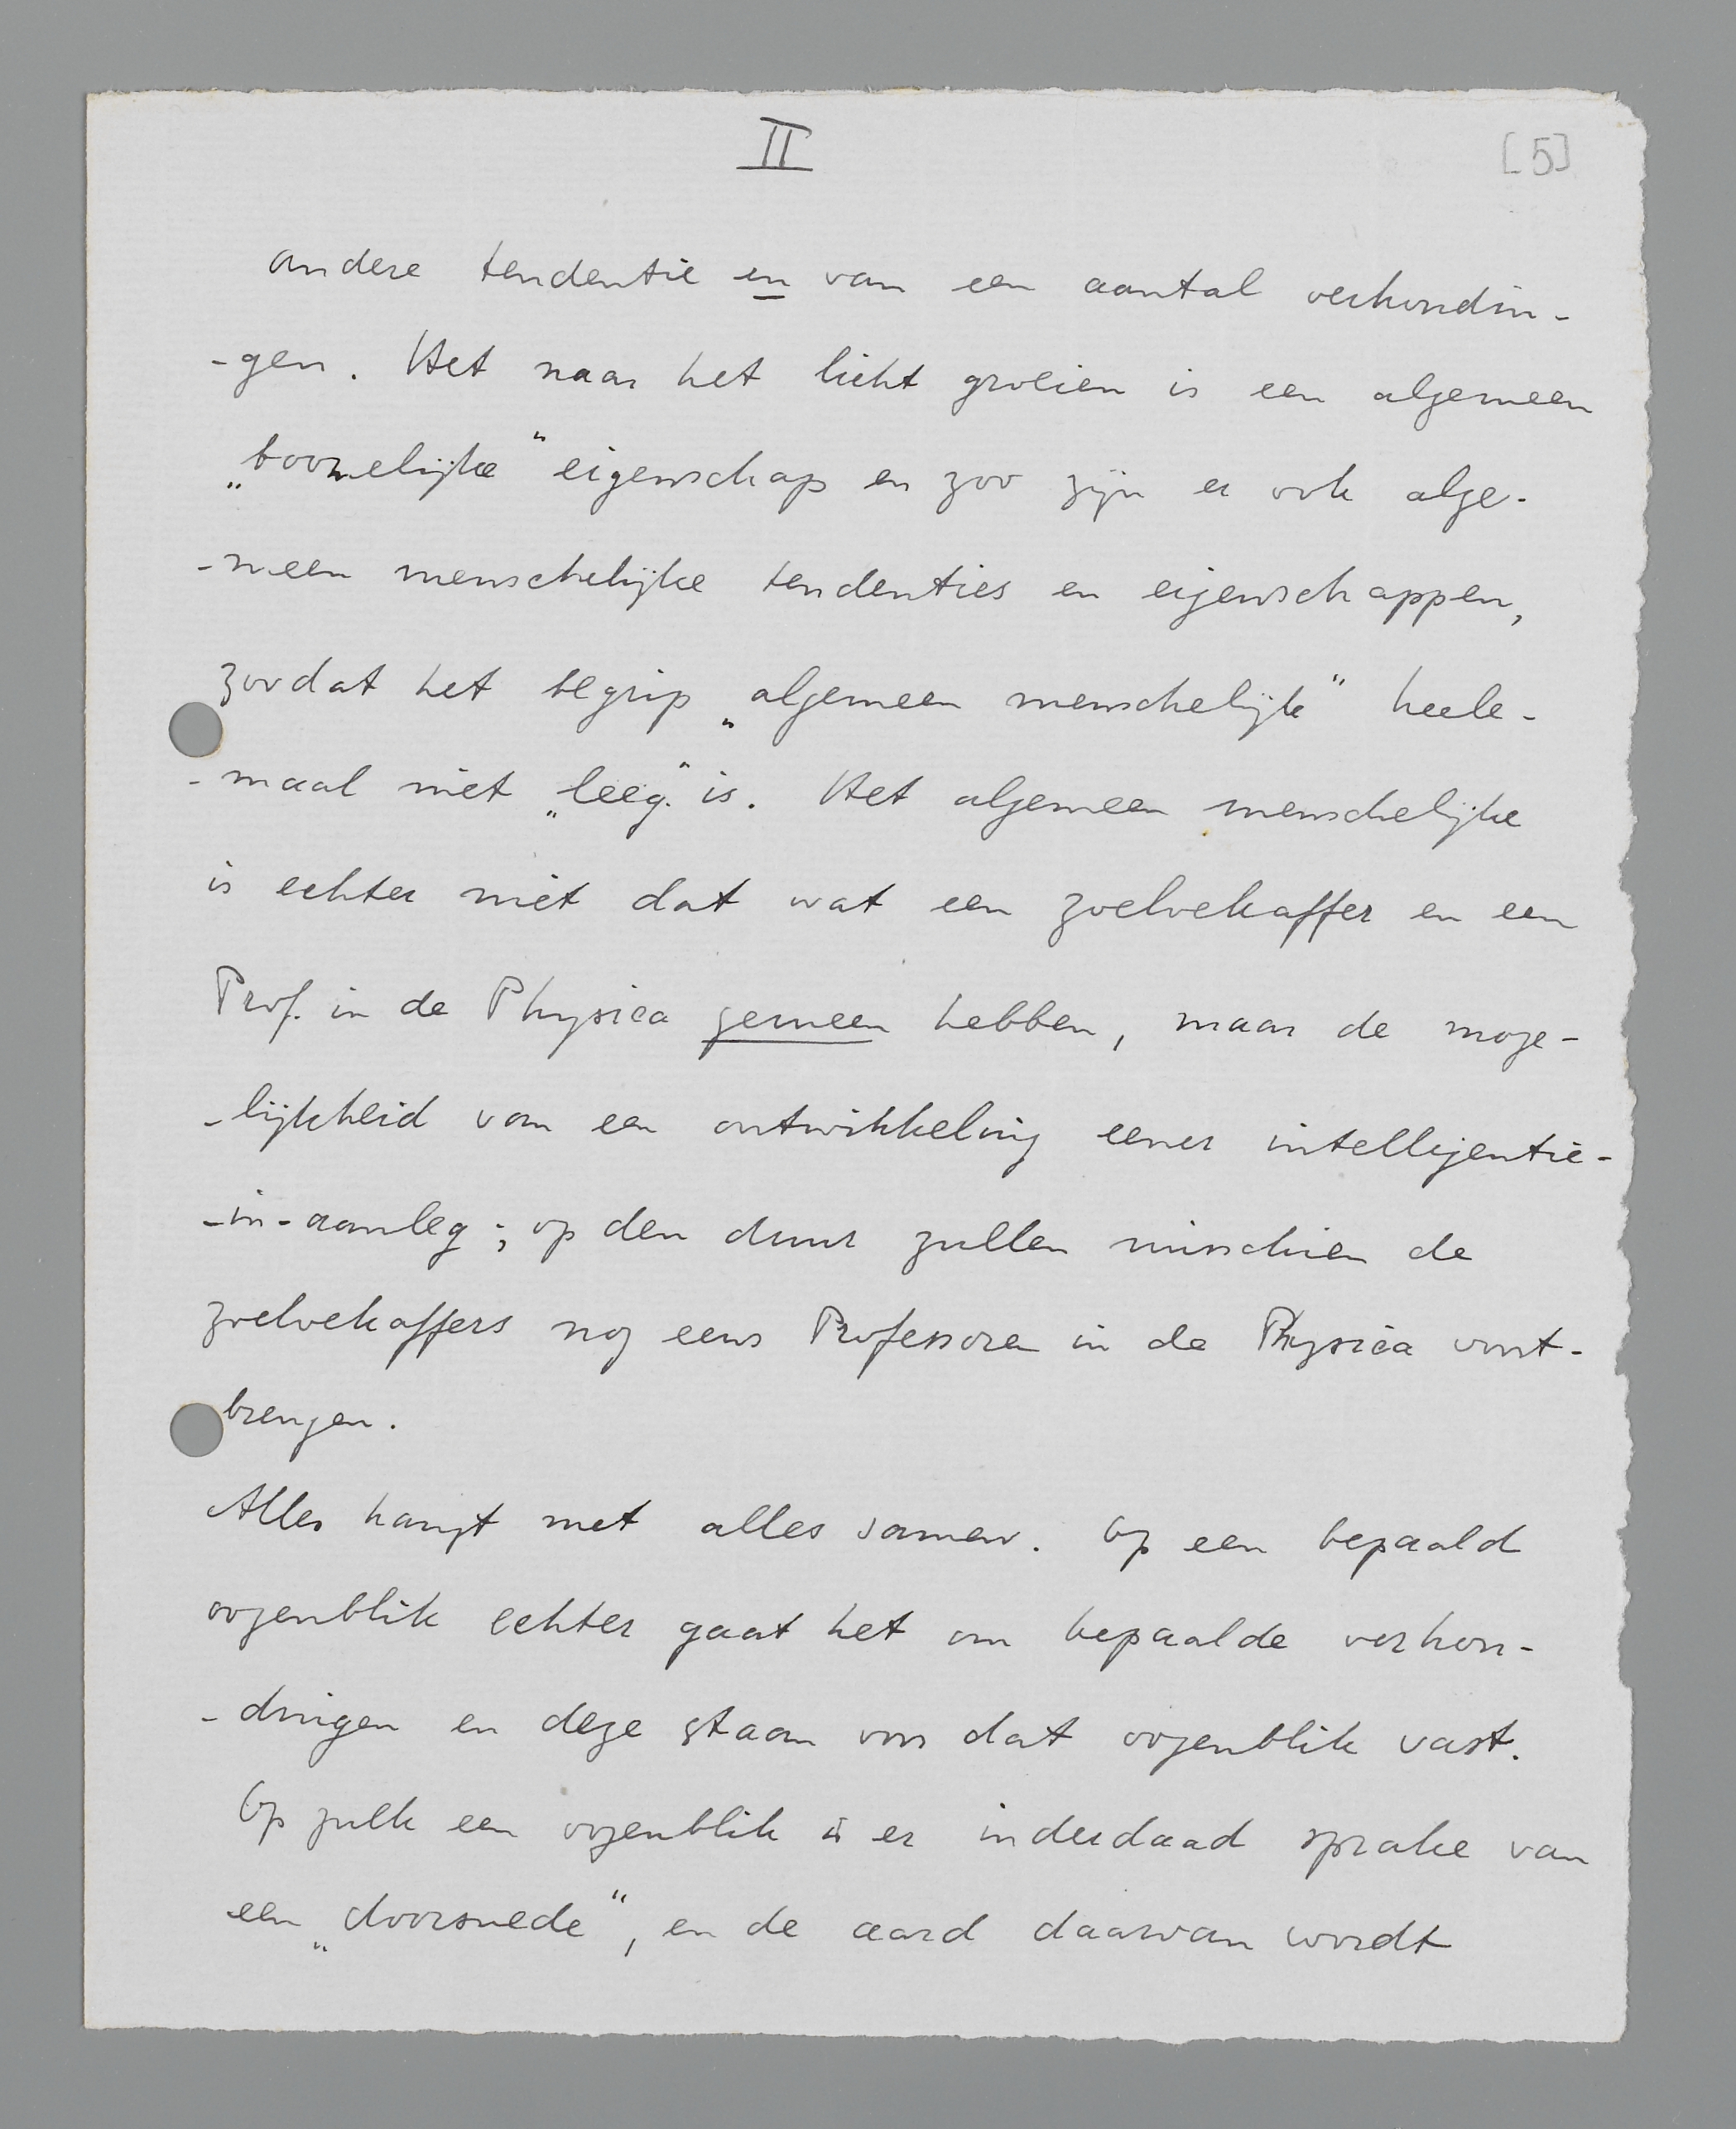 II
[5]
andere tendentie en van een aantal verhoudin-
-gen. Het naar het licht groeien is een algemeen
„boomelijke" eigenschap en zoo zijn er ook alge-
-meen menschelijke tendenties en eigenschappen,
zoodat het begrip „algemeen menschelijk" heele-
-maal niet „leeg" is. Het algemeen menschelijke
is echter niet dat wat een zoeloekaffer en een
Prof. in de Physica gemeen hebben, maar de moge-
-lijkheid van een ontwikkeling eener intelligentie-
-in-aanleg; op den duur zullen misschien de
zoeloekaffers nog eens Professoren in de Physica voort-
brengen.
Alles hangt met alles samen. Op een bepaald
oogenblik echter gaat het om bepaalde verhou-
-dingen en deze staan voor dat oogenblik vast.
Op zulk een oogenblik is er inderdaad sprake van
een „doorsnede", en de aard daarvan wordt